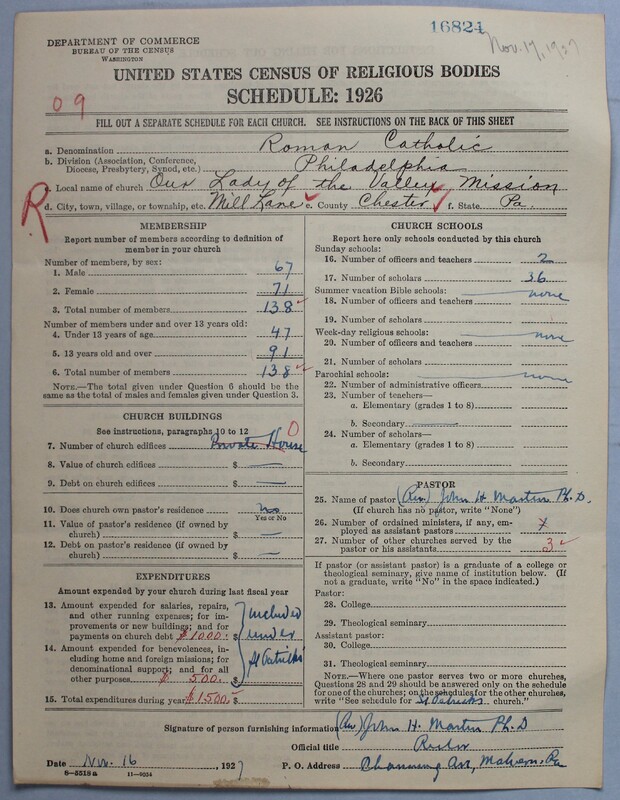 16824
Nov. 17, 1927
DEPARTMENT OF COMMERCE
BUREAU OF THE CENSUS
WASHINGTON
UNITED STATES CENSUS OF RELIGIOUS BODIES
SCHEDULE: 1926
09
FILL OUT A SEPARATE SCHEDULE FOR EACH CHURCH. SEE INSTRUCTIONS ON THE BACK OF THIS SHEET
a. Denomination Roman Catholic
b. Division (Association, Conference, Diocese, Presbytery, Synod, etc.) Philadelphia
c. Local name of church Our Lady of the Valley Mission
R d. City, town, village, or township, etc. Mill Lane e. County Chester f. State Pa
MEMBERSHIP
Report number of members according to definition of
member in your church
Number of members, by sex:
1. Male 67
2. Female 71
3. Total number of members 138
Number of members under and over 13 years old:
4. Under 13 years of age 47
5. 13 years old and over 91
6. Total number of members 138
NOTE.—The total given under Question 6 should be
the same as the total of males and females given under Question 3.
CHURCH BUILDINGS
See instructions, paragraphs 10 to 12
7. Number of church edifices Private House 0
8. Value of church edifices $ —
9. Debt on church edifices $ —
10. Does church own pastor's residence no
Yes or No
11. Value of pastor's residence (if owned by
church) $ —
12. Debt on pastor's residence (if owned by
church) $ —
EXPENDITURES
Amount expended by your church during last fiscal year
13. Amount expended for salaries, repairs,
and other running expenses; for im-
provements or new buildings; and for
payments on church debt $1000. $ included
14. Amount expended for benevolences, under
including home and foreign missions; for St Patricks
denominational support; and for all
other purposes $ 500. $
15. Total expenditures during year $1500 $
CHURCH SCHOOLS
Report here only schools conducted by this church
Sunday schools:
16. Number of officers and teachers 2
17. Number of scholars 36
Summer vacation Bible schools: none
18. Number of officers and teachers
19. Number of scholars
Week-day religious schools: none
20. Number of officers and teachers
21. Number of scholars
Parochial schools: none
22. Number of administrative officers
23. Number of teachers—
a. Elementary (grades 1 to 8)
b. Secondary
24. Number of scholars—
a. Elementary (grades 1 to 8)
b. Secondary
PASTOR
25. Name of pastor (Rev) John H. Martin Ph.D.
(If church has no pastor, write "None")
26. Number of ordained ministers, if any, em-
ployed as assistant pastors
27. Number of other churches served by the
pastor or his assistants 3
If pastor (or assistant pastor) is a graduate of a college or
theological seminary, give name of institution below. (If
not a graduate, write "No" in the space indicated.)
Pastor:
28. College
29. Theological seminary
Assistant pastor:
30. College
31. Theological seminary
NOTE.—Where one pastor serves two or more churches,
Questions 28 and 29 should be answered only on the schedule
for one of the churches; on the schedules for the other churches,
write "See schedule for St Patricks church."
Signature of person furnishing information (Rev) John H. Martin Ph.D
Official title Rector
Date Nov. 16 1927 P. O. Address Channing Av, Malvern. Pa
8—5518a 11—9054